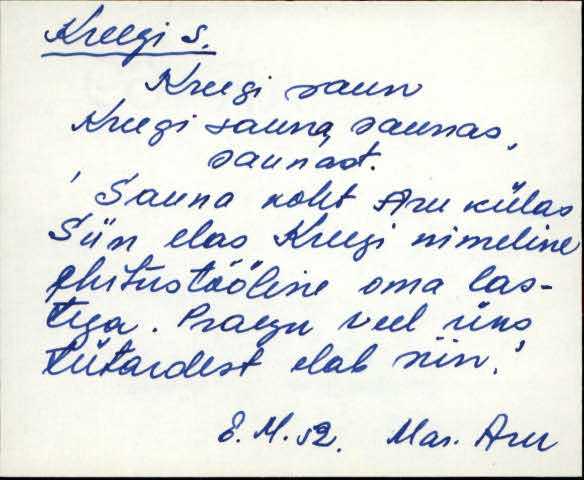 Kreegi s.
Kreegi saun
Kreegi sauna, saunas,
saunast.
' Sauna koht Aru külas
Siin elas Kreegi nimeline
ehitustööline oma las-
tega. Praegu veel üks
tütardest elab siin.'
E. M. 52. Mar. Aru